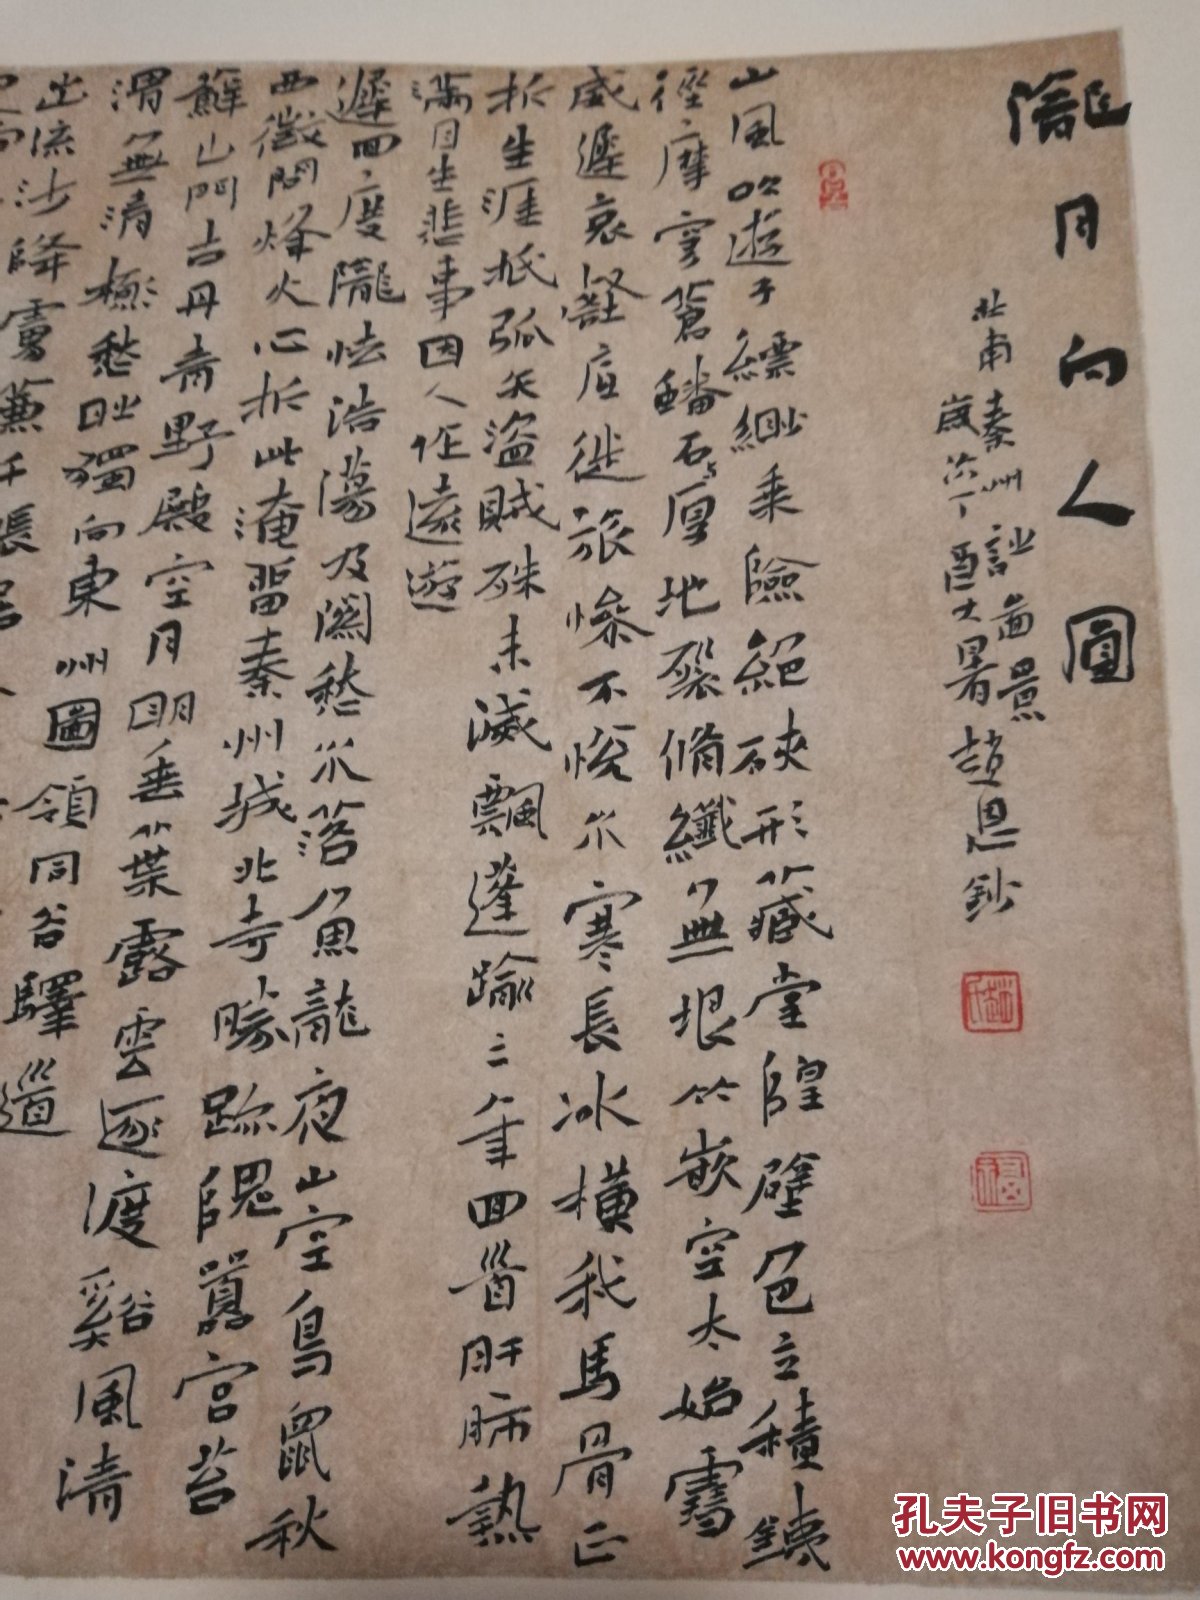 隴月向人圓
杜甫秦州詩
歲次丁酉大暑趙恩鈔
山風吹遊子縹緲乘險絕硤形藏堂隍壁色立積鐵
徑摩穹蒼蟠石與厚地裂脩纖無垠竹嵌空太始雪
威遲哀壑底徒旅慘不悅水寒長冰橫我馬骨正
折生涯抵弧矢盜賊殊未滅飄蓬踰三年回首肝肺熱
滿目生悲事因人作遠遊
遲回度隴怯浩蕩及關愁水落魚龍夜山空鳥鼠秋
西徵問烽火心折此淹留秦州城北寺勝跡隗囂宮苔
蘚山門古丹青野殿空月明垂葉露雲逐渡谿風清
渭無清極愁時獨向東州圖領同谷驛道
出流沙降虜兼千帳居人
孔夫子旧书网
www.kongfz.com